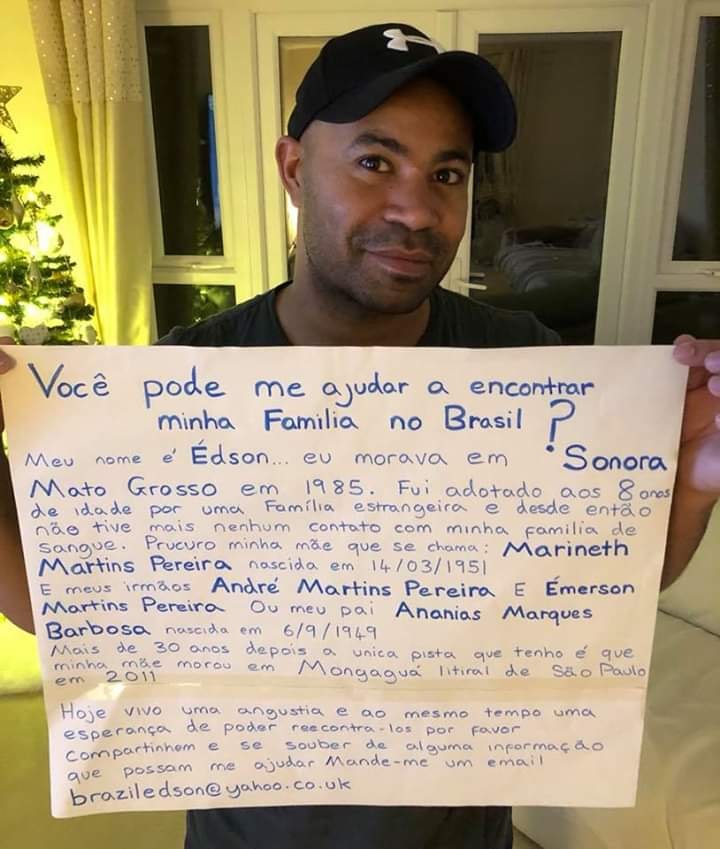 Você pode me ajudar a encontrar
minha Familia no Brasil ?
Meu nome é Édson... eu morava em Sonora
Mato Grosso em 1985. Fui adotado aos 8 anos
de idade por uma Família estrangeira e desde então
não tive mais nenhum contato com minha familia de
sangue. Prucuro minha mãe que se chama: Marineth
Martins Pereira nascida em 14/03/1951
E meus irmãos André Martins Pereira E Émerson
Martins Pereira Ou meu pai Ananias Marques
Barbosa nascida em 6/9/1949
Mais de 30 anos depois a unica pista que tenho é que
minha mãe morou em Mongaguá litiral de São Paulo
em 2011
Hoje vivo uma angustia e ao mesmo tempo uma
esperança de poder reecontra-los por favor
compartinhem e se souber de alguma informação
que possam me ajudar Mande-me um email
braziledson@yahoo.co.uk